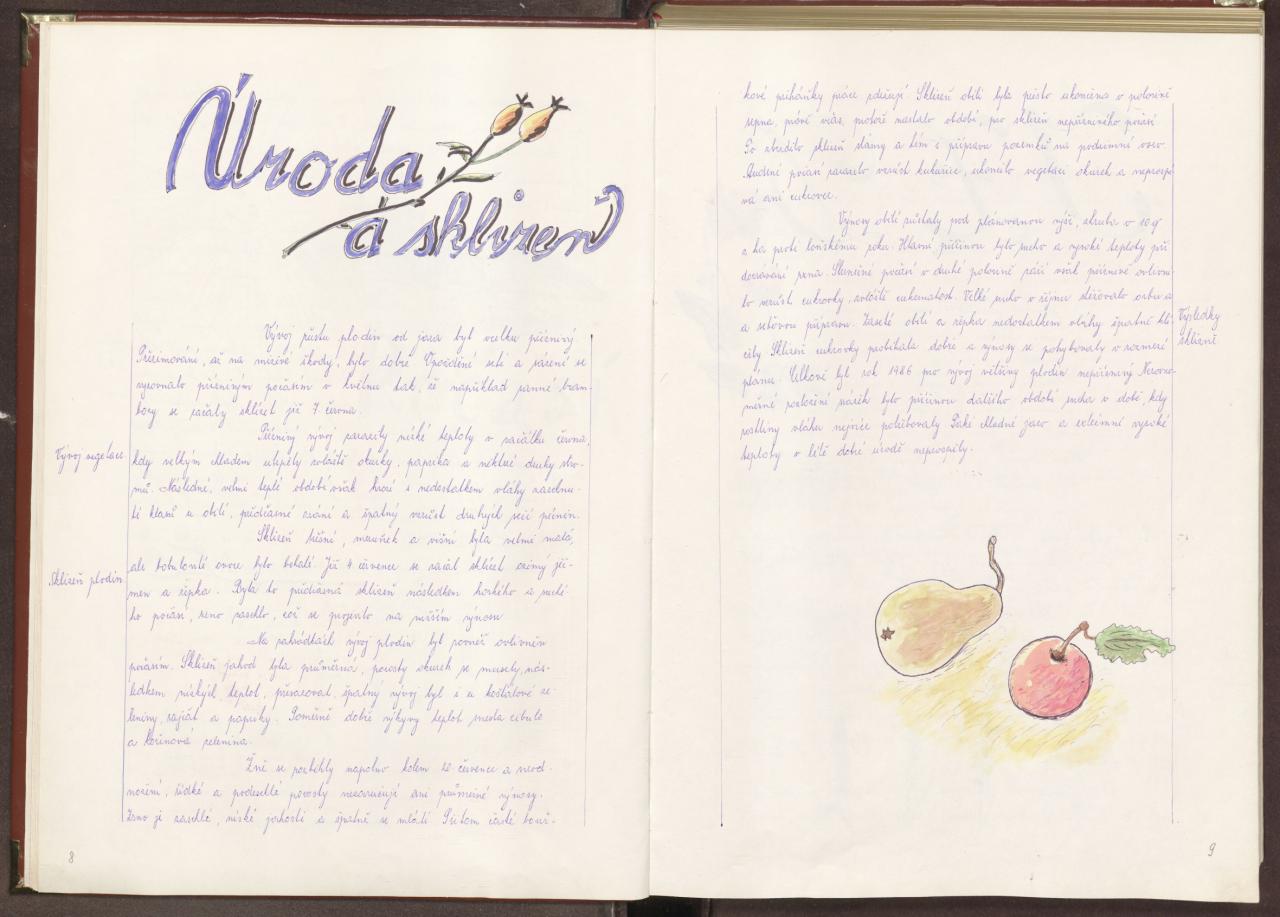 Úroda
a sklizeň
Vývoj růstu plodin od jara byl vcelku příznivý
Přezimování, až na mizivé škody, bylo dobré. Opoždění setí a sázení se
vyrovnalo příznivým počasím v květnu tak, že například ranné bram-
bory se začaly sklízet již 7. června.
Příznivý vývoj zarazily nízké teploty v začátku června,
Vývoj vegetace
kdy velkým chladem utrpěly zvláště okurky, paprika a některé druhy stro-
mů. Následné, velmi teplé období však hrozí s nedostatkem vláhy zaschnu-
tí klasů u obilí, předčasné zrání a špatný vzrůst druhých sečí pícnin.
Sklizeň třešní, meruněk a višní byla velmi malá,
ale bobulovité ovoce bylo bohaté. Již 4 července se začal sklízet ozimý ječ-
Sklizeň plodin
men a řepka. Byla to předčasná sklizeň následkem horkého a suché-
ho počasí, zrno zaschlo, což se projevilo na nižším výnosu
Na zahrádkách vývoj plodin byl rovněž ovlivněn
počasím. Sklizeň jahod byla průměrná, porosty okurek se musely, nás-
ledkem nízkých teplot, přesazovat, špatný vývoj byl i u košťálové ze-
leniny, rajčat a papriky. Poměrně dobře výkyvy teplot snesla cibule
a kořenová zelenina.
Žně se rozběhly naplno kolem července a neod-
nožení, řídké a podeschlé porosty nezaručují ani průměrné výnosy.
Zrno je zaschlé, nízké jakosti a špatně se mlátí Přitom časté bouř-
8
kové přeháňky práce zdržují. Sklizeň obilí byla přesto ukončena v polovině
srpna, právě včas, protože nastalo období, pro sklizeň nepříznivého počasí
To zbrzdilo sklizeň slámy a tím i přípravu pozemků na podzimní osev.
Studené počasí zarazilo vzrůst kukuřice, ukončilo vegetaci okurek a neprospí-
vá ani cukrovce.
Výnosy obilí zůstaly pod plánovanou výší, zhruba o 10 q
z ha proti loňskému roku. Hlavní příčinou bylo sucho a vysoké teploty při
dozrávání zrna. Slunečné počasí v druhé polovině září však příznivě ovlivni-
lo vzrůst cukrovky, zvláště cukernatost. Velké sucho v říjnu stěžovalo orbu a
Výsledky
a seťovou přípravu. Zaseté obilí a řepka nedostatkem vláhy špatně klí-
sklizně
čily Sklizeň cukrovky probíhala dobře, a výnosy se pohybovaly v rozmezí
plánu. Celkově byl rok 1986 pro vývoj většiny plodin nepříznivý Nerovno-
měrné rozložení srážek bylo příčinou dalšího období sucha v době, kdy
rostliny vláhu nejvíce potřebovaly Také chladné jaro a extrémní vysoké
teploty v létě dobré úrodě neprospěly.
9